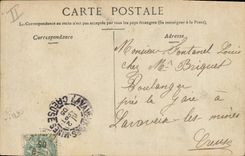 CARTE POSTALE
Ce recto n'est pas accepté par tous pays étrangers (Se renseigner à la Poste).
Correspondance
Adresse
Monsieur Fontanel Louis
chez Mr Briquet
Boulanger
près la Gare à
Lavaveix les mines
Creuse